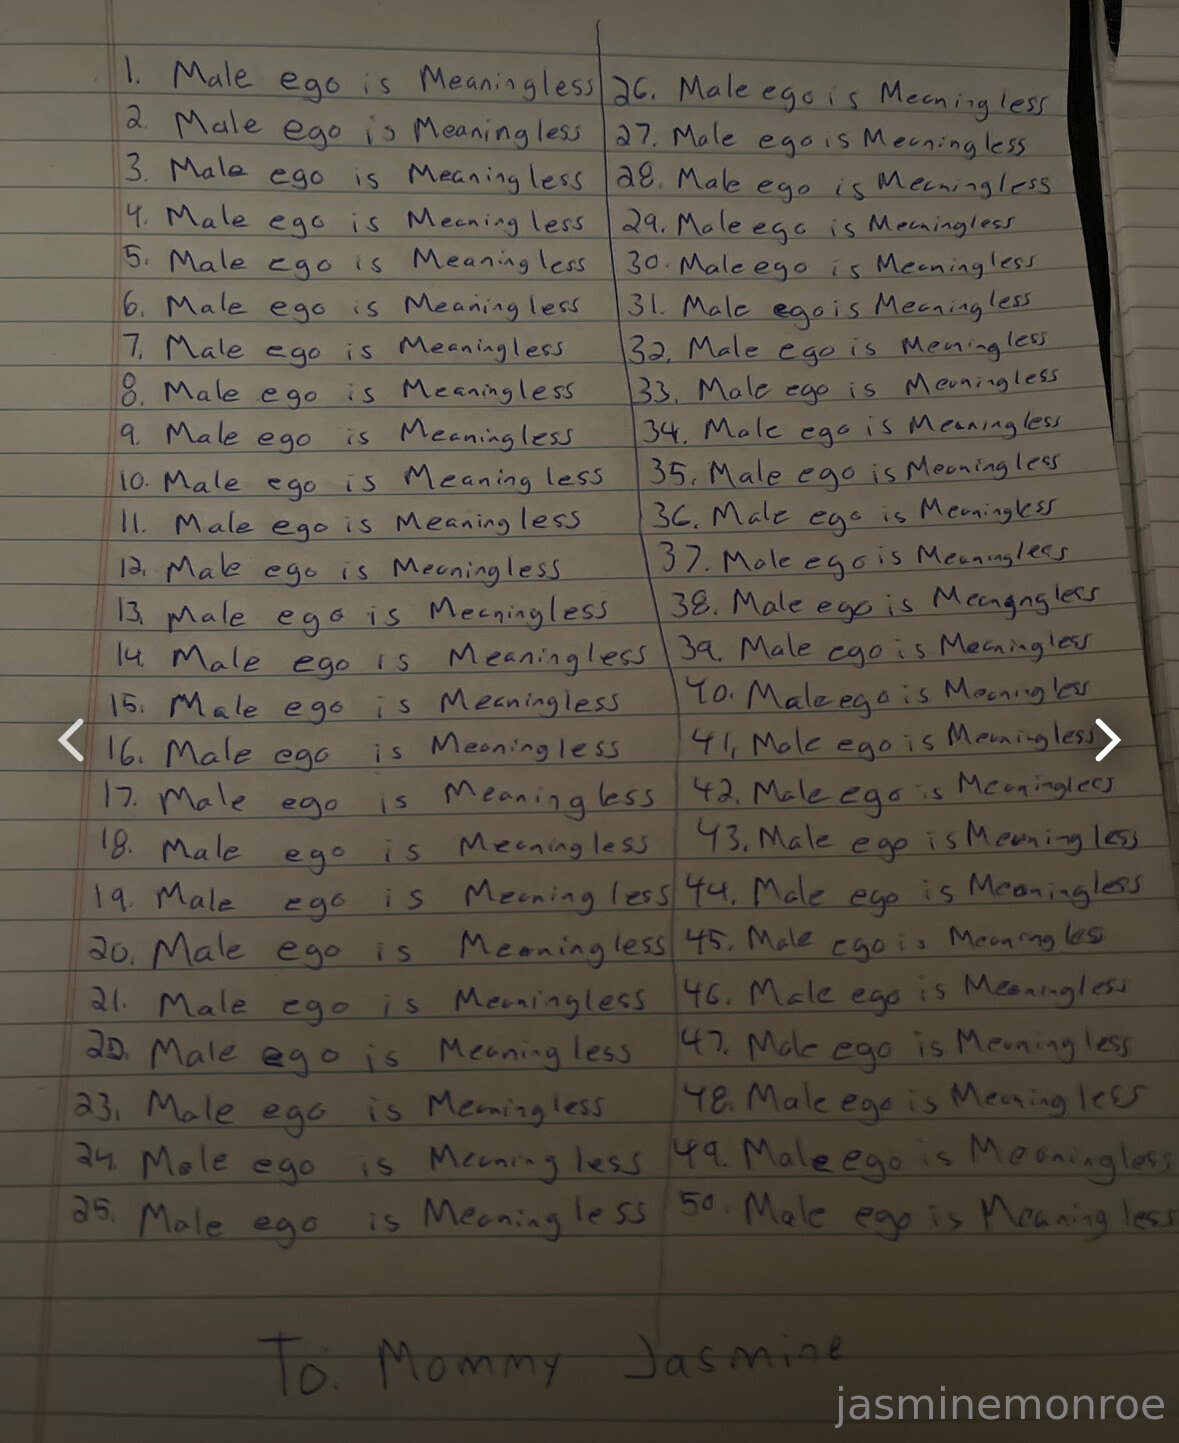 1. Male ego is Meaningless
2. Male ego is Meaningless
3. Male ego is Meaningless
4. Male ego is Meaningless
5. Male ego is Meaningless
6. Male ego is Meaningless
7. Male ego is Meaningless
8. Male ego is Meaningless
9. Male ego is Meaningless
10. Male ego is Meaningless
11. Male ego is Meaningless
12. Male ego is Meaningless
13. Male ego is Meaningless
14. Male ego is Meaningless
15. Male ego is Meaningless
16. Male ego is Meaningless
17. Male ego is Meaningless
18. Male ego is Meaningless
19. Male ego is Meaningless
20. Male ego is Meaningless
21. Male ego is Meaningless
22. Male ego is Meaningless
23. Male ego is Meaningless
24. Male ego is Meaningless
25. Male ego is Meaningless
26. Male ego is Meaningless
27. Male ego is Meaningless
28. Male ego is Meaningless
29. Male ego is Meaningless
30. Male ego is Meaningless
31. Male ego is Meaningless
32. Male ego is Meaningless
33. Male ego is Meaningless
34. Male ego is Meaningless
35. Male ego is Meaningless
36. Male ego is Meaningless
37. Male ego is Meaningless
38. Male ego is Meangngless
39. Male ego is Meaningless
40. Male ego is Meaningless
41, Male ego is Meaningless
42. Male ego is Meaningless
43. Male ego is Meaningless
44. Male ego is Meaningless
45. Male ego is Meaningless
46. Male ego is Meaningless
47. Male ego is Meaningless
48. Male ego is Meaningless
49. Male ego is Meaningless
50. Male ego is Meaningless
To. Mommy Jasmine
jasminemonroe